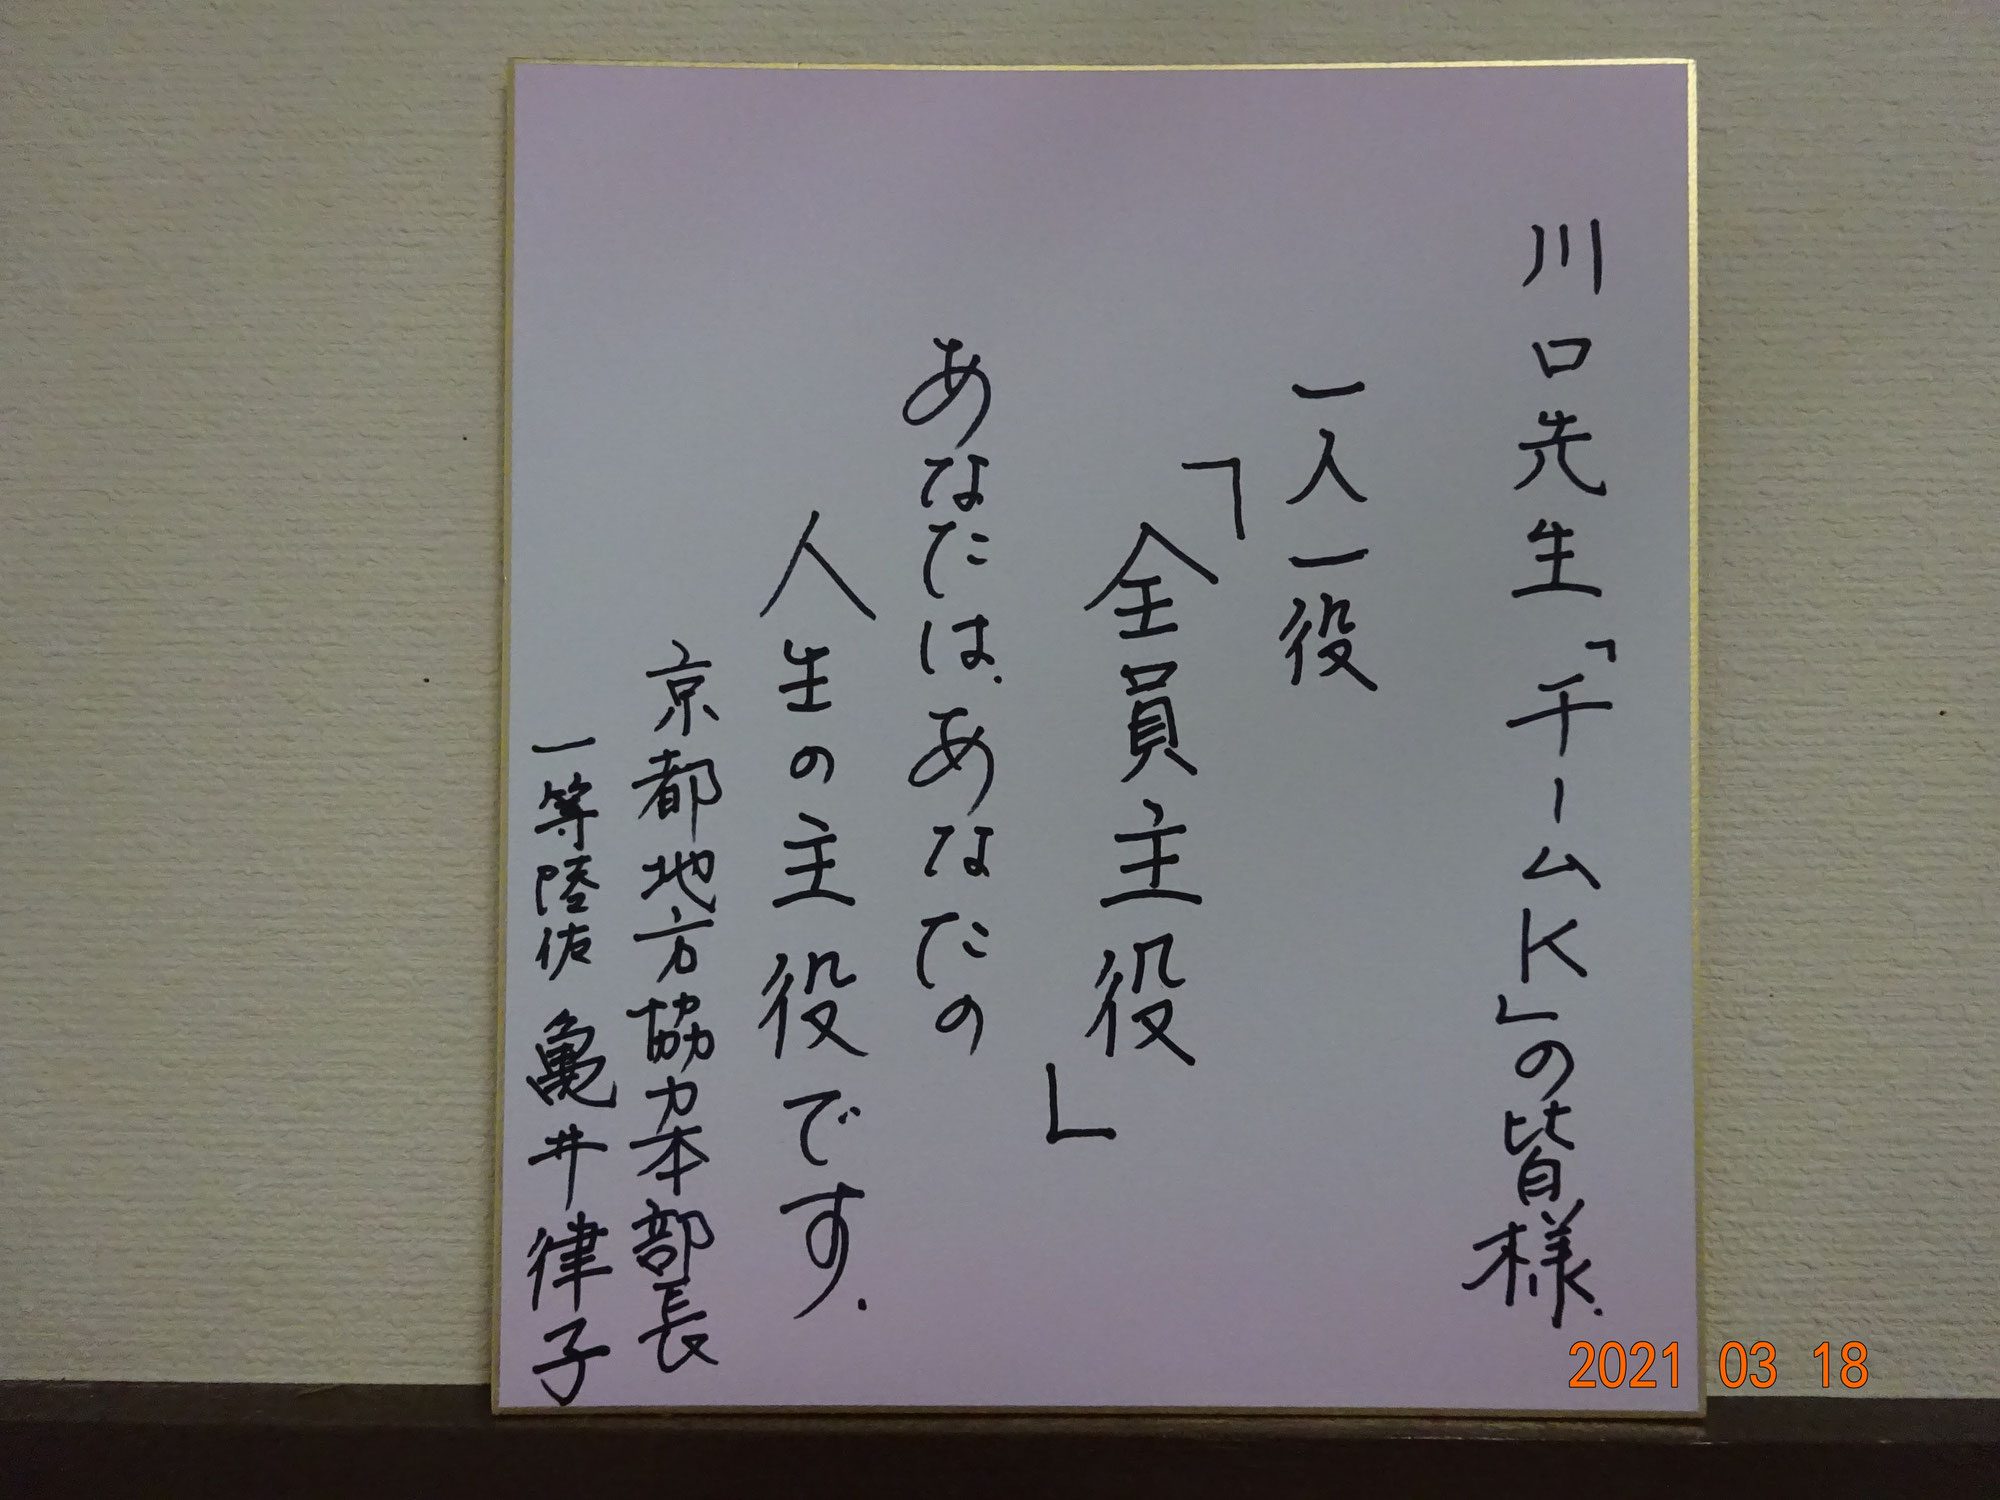 川口先生「チームK」の皆様.
一人一役
「全員主役」
あなたは、あなたの
人生の主役です.
京都地方協力本部長
一等陸佐 亀井律子
2021 03 18